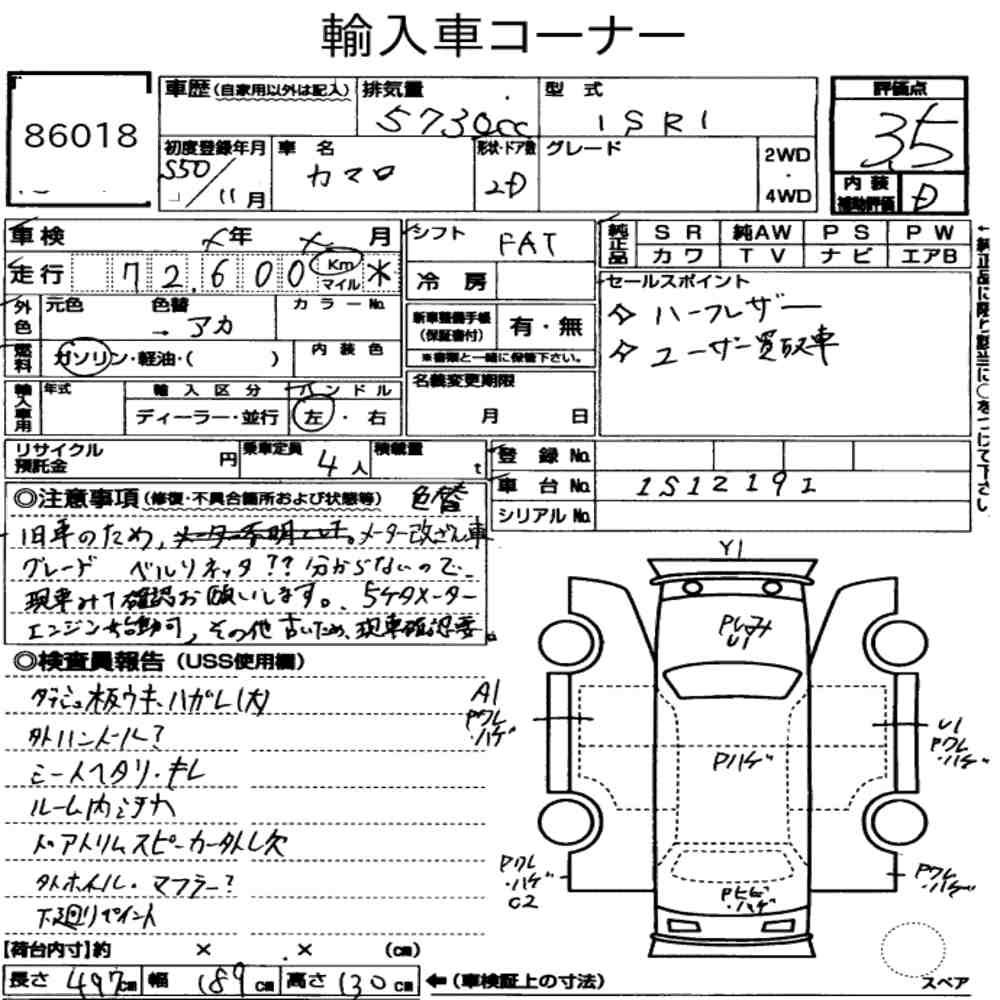 輸入車コーナー
86018
車歴(自家用以外は記入)
排気量
5730cc
型式
1SR1
評価点
3.5
初度登録年月
S50/11月
車名
カマロ
形状・ドア数
2D
グレード
2WD
・
4WD
内装
補助評価
D
車検 ×年 ×月
シフト FAT
純正品
SR 純AW PS PW
カワ TV ナビ エアB
走行 72,600 Km マイル *
冷房
外色
元色 色替 カラーNo.
→ アカ
新車整備手帳
(保証書付)
有・無
※書類と一緒に保管下さい。
セールスポイント
☆ ハーフレザー
☆ ユーザー買取車
燃料
ガソリン・軽油・( )
内装色
輸入車用
年式
輸入区分
ハンドル
ディーラー・並行
左・右
名義変更期限
月 日
リサイクル
預託金
円
乗車定員
4人
積載量
t
登録No.
車台No. 1S12191
シリアルNo.
◎注意事項(修復・不具合箇所および状態等) 色替
旧車のため、メーター不明です。メーター改ざん車
グレード ベルリネッタ??分からないので、
現車みて確認お願いします。、5ケタメーター
エンジン始動可,その他古いため、現車確認要。
◎検査員報告(USS使用欄)
板ウキ、ハガレ(大)
外ハンドル?
シートヘタリ・キレ
ルーム内ミダれ
ドアトリムスピーカー外し欠
外ホイル・マフラー?
下廻りペイント
【荷台内寸】約 × ・× (cm)
長さ 497cm 幅 189cm 高さ 130cm
←(車検証上の寸法)
Y1
U1
A1
Pワレ
・ハゲ
U1
Pワレ
・ハゲ
Pハゲ
Pワレ
・ハゲ
C2
Pヒビ
・ハゲ
Pワレ
・ハゲ
スペア